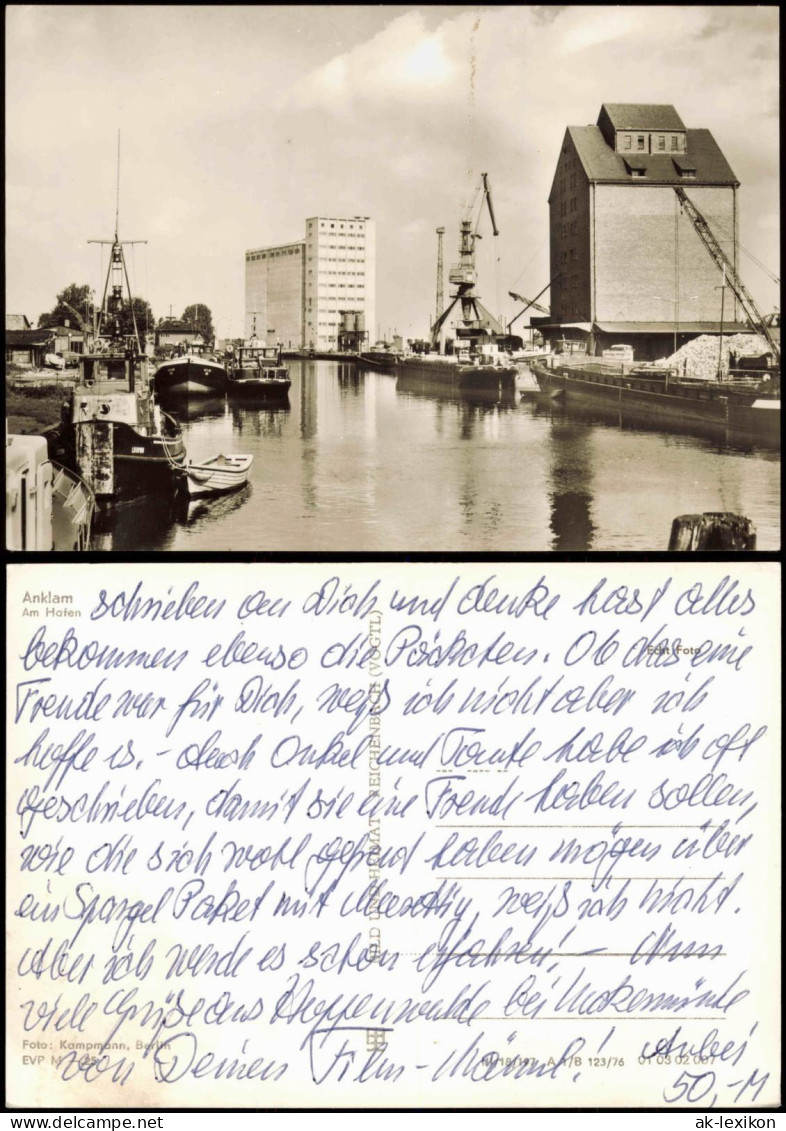 Anklam
Am Hafen
Echt Foto
schrieben an Dich und denke hast alles
bekommen ebenso die Päckchen. Ob das eine
Freude war für Dich, weiß ich nicht aber ich
hoffe es. - Auch Onkel und Tante habe ich oft
geschrieben, damit sie eine Freude haben sollen,
wie die sich wohl gefreut haben mögen über
ein Spargel Paket mit weiß ich nicht.
Aber ich werde es schon erfahren! - Nun
viele Grüße aus Hoppenwalde bei Ueckermünde
von Deinem Film-
Anbei
50,-M
BILD UND HEIMAT REICHENBACH (VOGTL)
Foto: Kampmann, Berlin
EVP M
III/18/197 A 1/B 123/76 01 03 02 087
www.ak-ansichtskarten.de
ak-lexikon